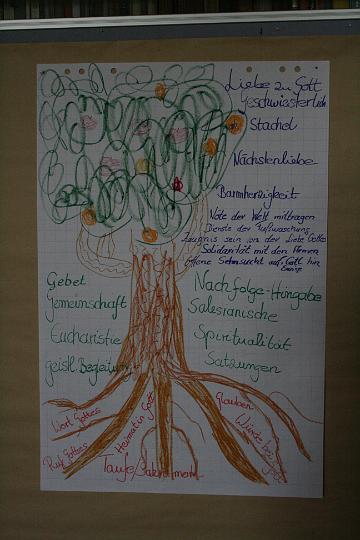 Liebe zu Gott
Geschwisterlich
Stachel
Nächstenliebe
Barmherzigkeit
Nöte der Welt mittragen
Dienste der Fußwaschung
Zeugnis sein von der Liebe Gottes
Solidarität mit den Armen
offene Sehnsucht auf Gott hin
Gebet
Gemeinschaft
Eucharistie
geistl. Begleitung
Nachfolge-Hingabe
Salesianische
Spiritualität
Satzungen
Wort Gottes
Ruf Gottes
Heimat in Gott
Taufe/Sakrament
Glauben
Würde